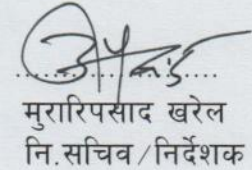 मुरारिप्रसाद खरेल
नि.सचिव/निर्देशक